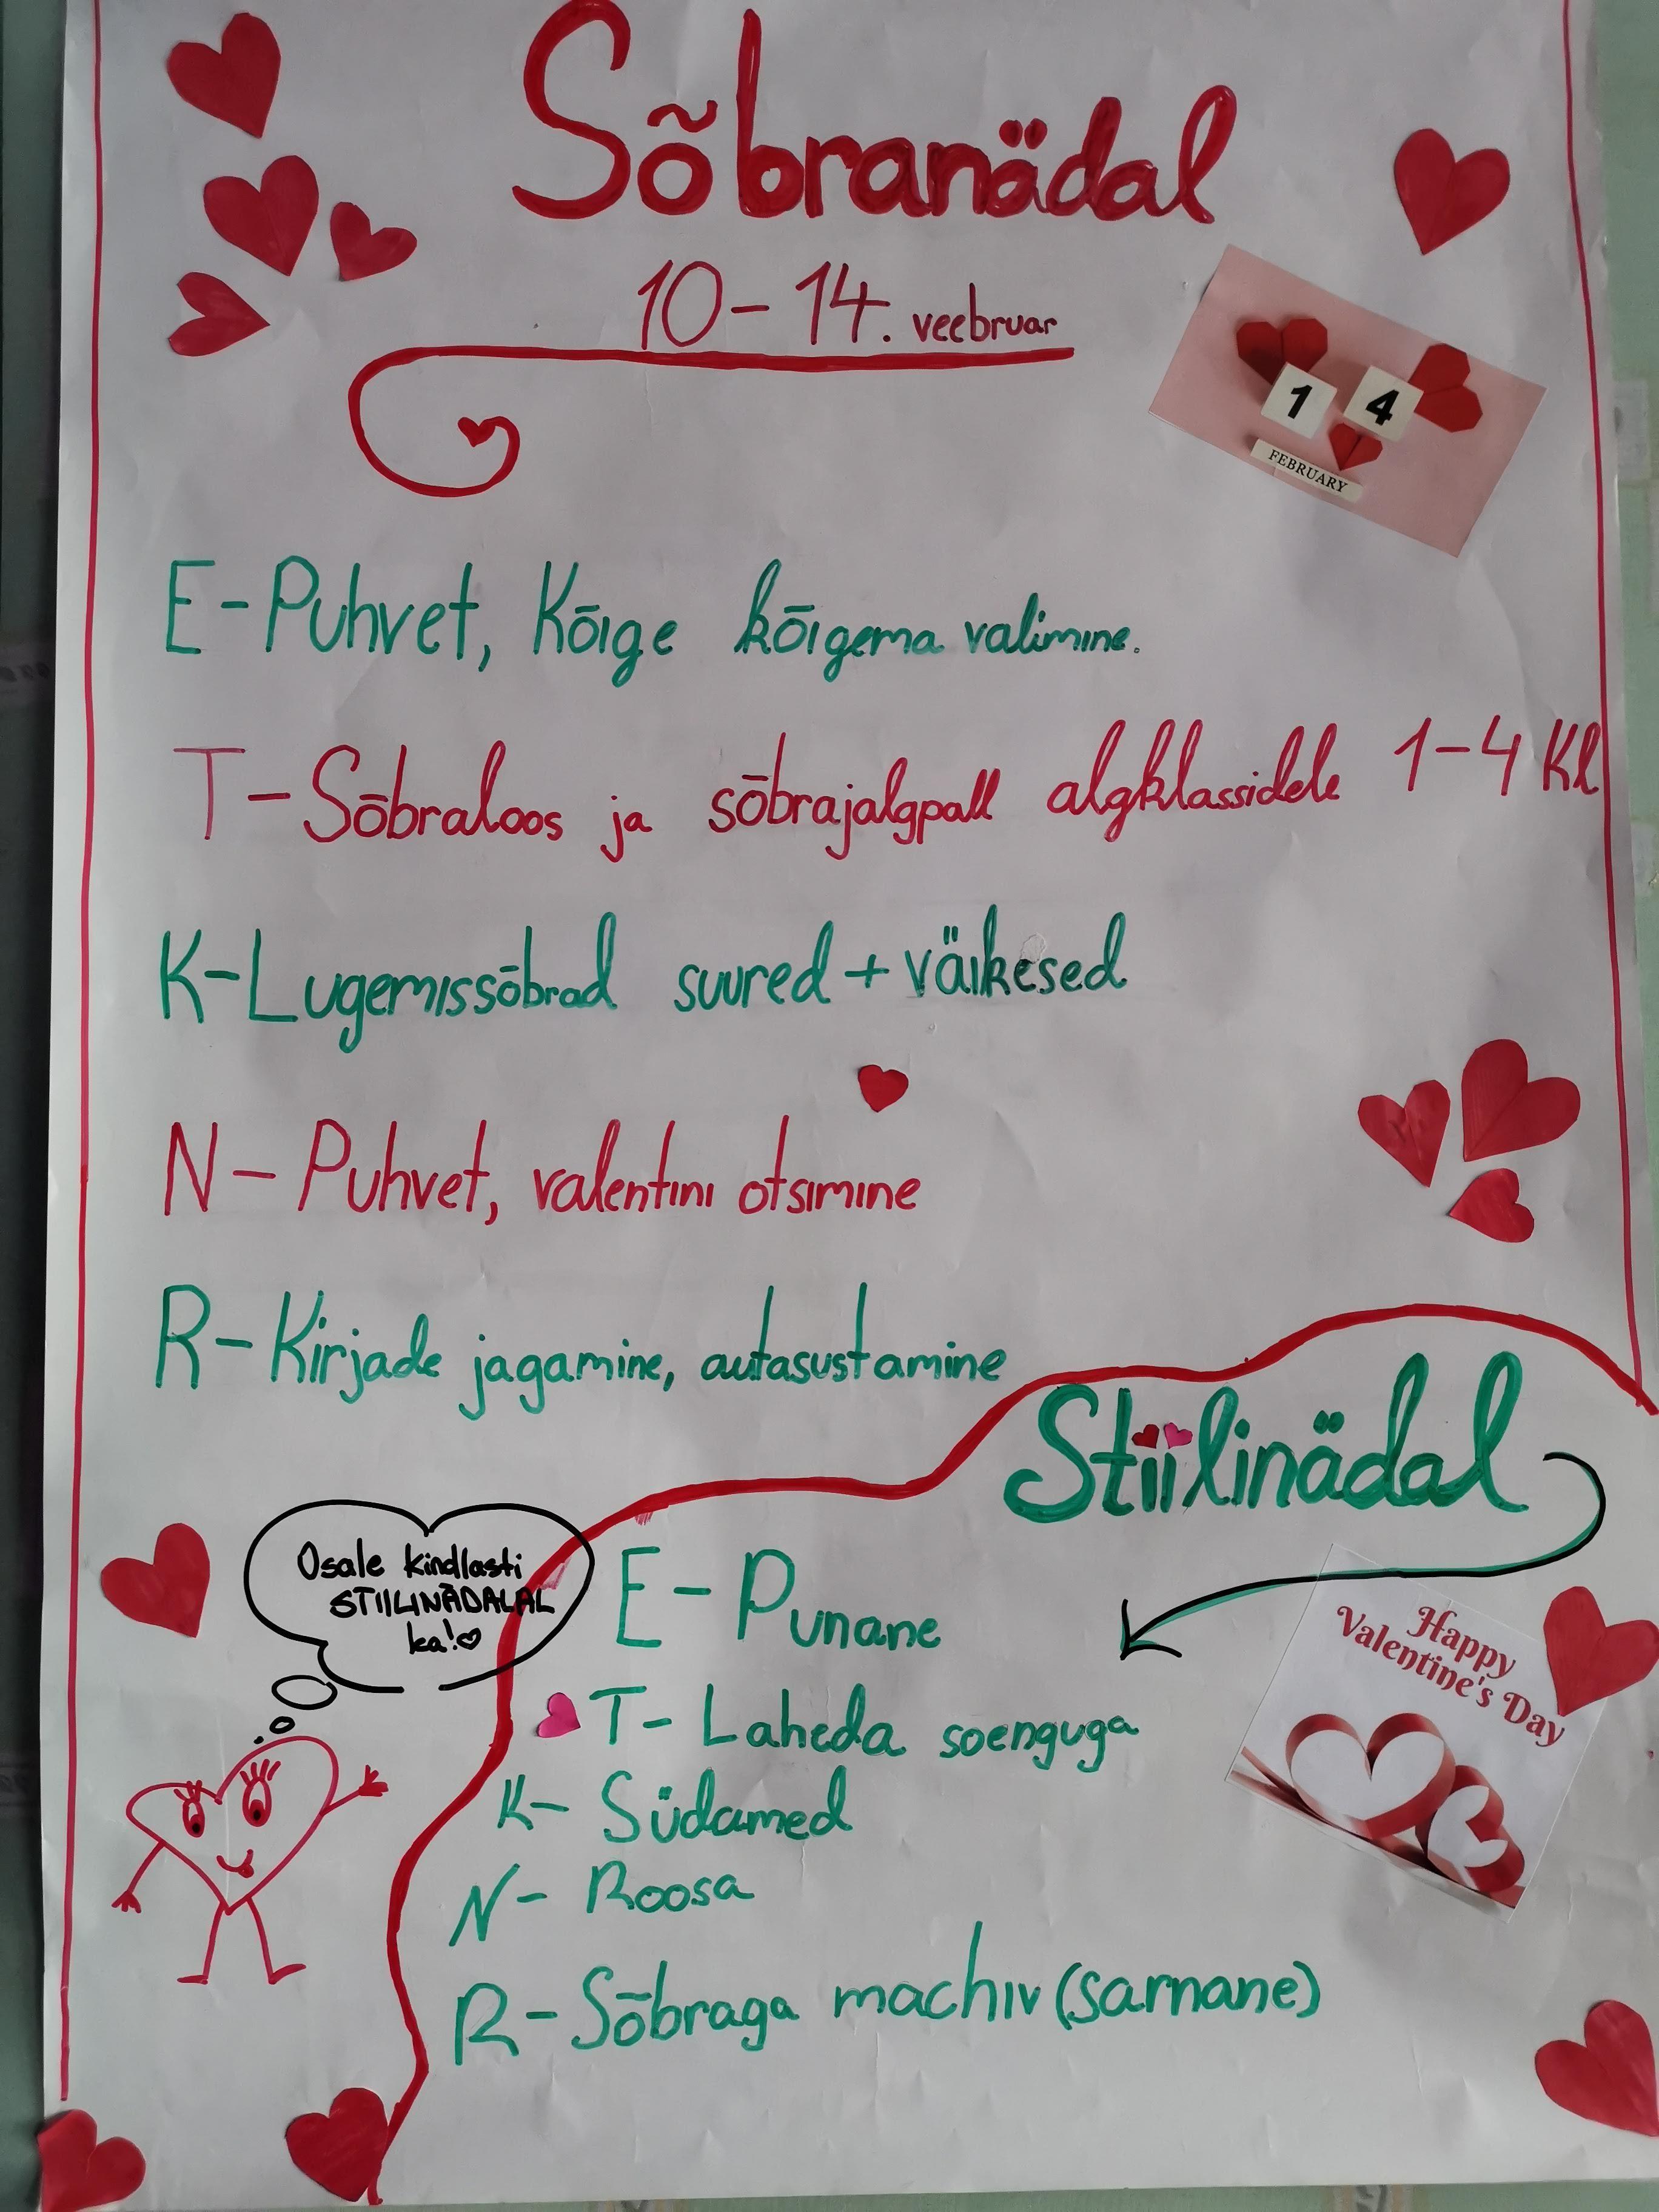 Sõbranädal
10-14. veebruar
1 4
FEBRUARY
E-Puhvet, Kõige kõigema valimine.
T-Sõbraloos ja sõbrajalgpall algklassidele 1-4 Kl
K-Lugemissõbrad suured + väikesed
N- Puhvet, valentini otsimine
R- Kirjade jagamine, autasustamine
Stiilinädal
Osale kindlasti
STIILINÄDALAL
ka!
E- Punane
Happy
Valentine's Day
T- Laheda soenguga
K- Südamed
N- Roosa
R-Sõbraga machiv (sarnane)